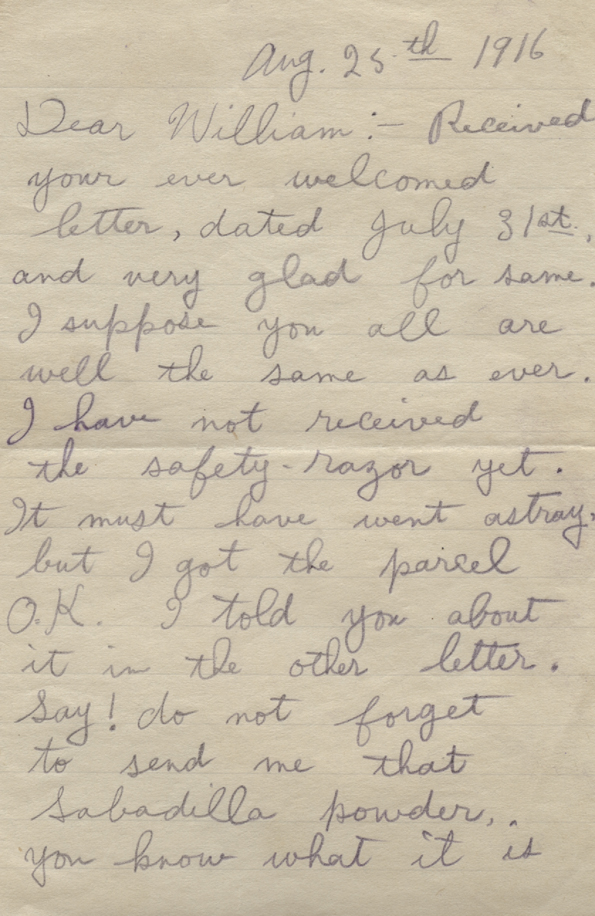 Aug. 25th 1916
Dear William:- Received
your ever welcomed
letter, dated July 31st.,
and very glad for same.
I suppose you all are
well the same as ever.
I have not received
the safety-razor yet.
It must have went astray,
but I got the parcel
O.K. I told you about
it in the other letter.
Say! do not forget
to send me that
Sabadilla powder,.
you know what it is